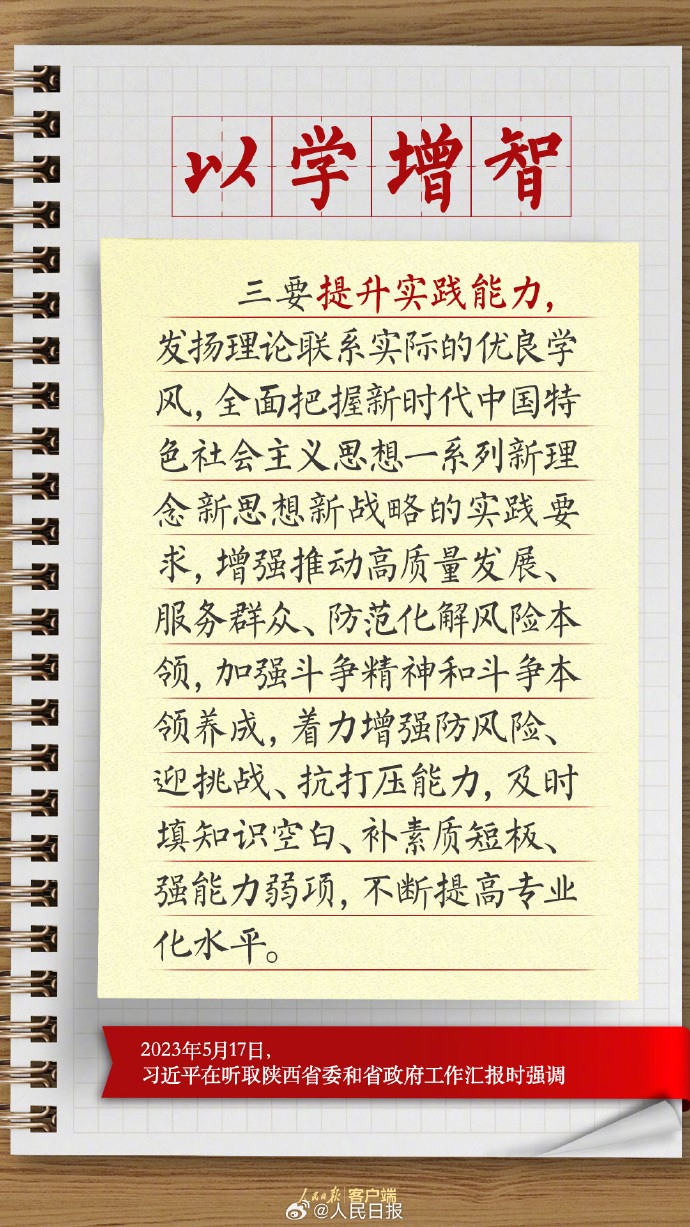 以学增智
三要提升实践能力，
发扬理论联系实际的优良学
风，全面把握新时代中国特
色社会主义思想一系列新理
念新思想新战略的实践要
求，增强推动高质量发展、
服务群众、防范化解风险本
领，加强斗争精神和斗争本
领养成，着力增强防风险、
迎挑战、抗打压能力，及时
填知识空白、补素质短板、
强能力弱项，不断提高专业
化水平。
2023年5月17日，
习近平在听取陕西省委和省政府工作汇报时强调
人民日报 客户端
@人民日报